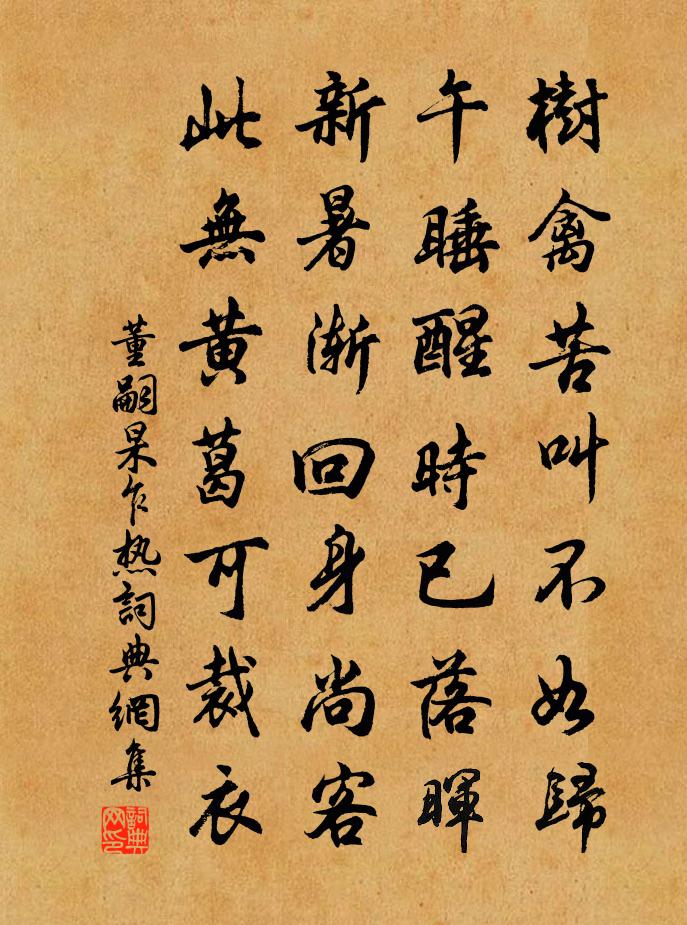 樹禽苦叫不如歸
午睡醒時已落暉
新暑渐回身尚客
此無黄葛可裁衣
董嗣杲乍热詞典網集
詞典网印